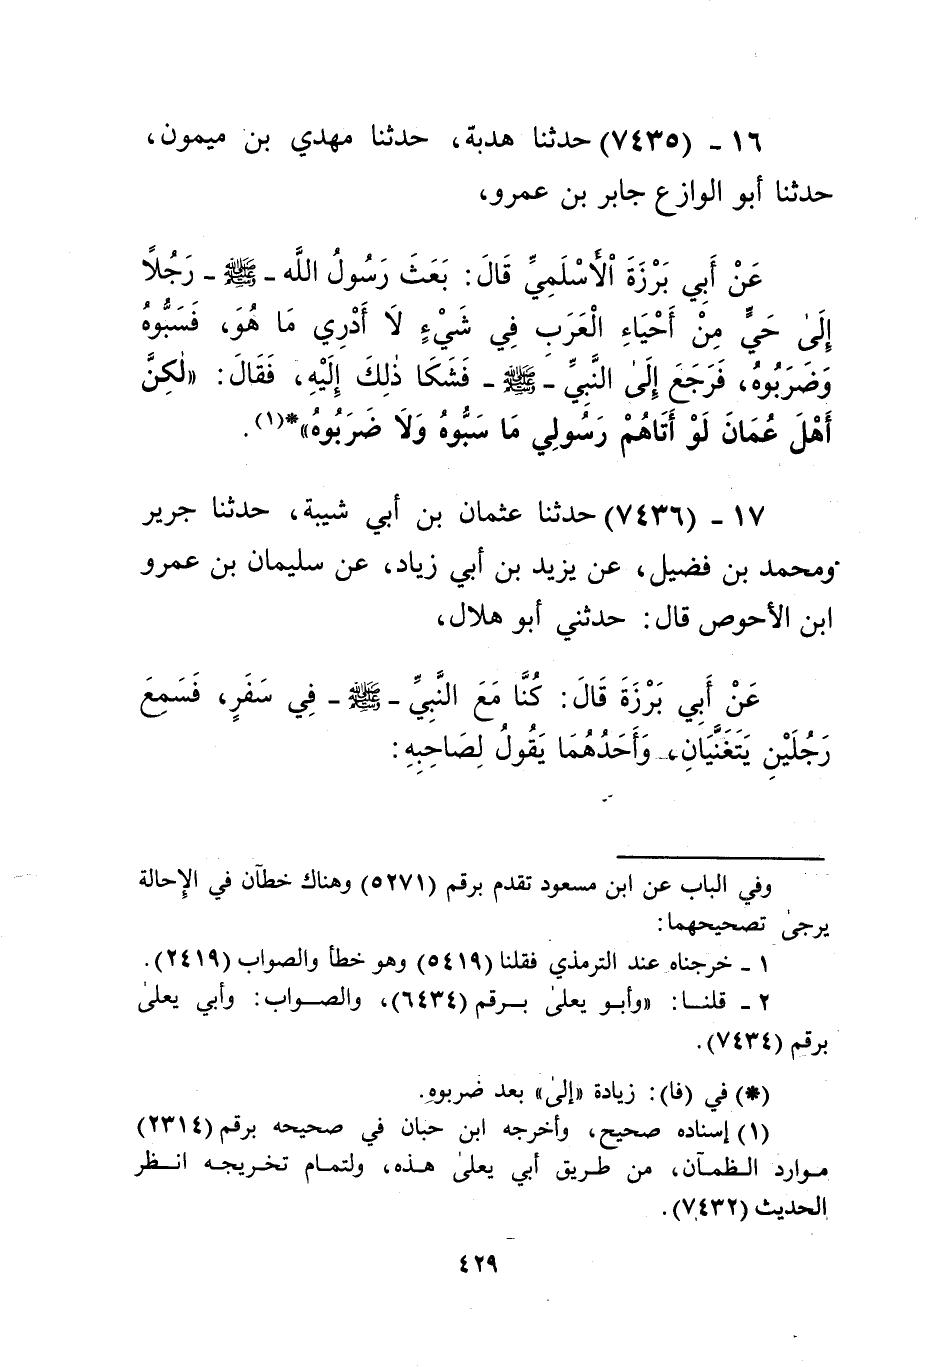 ١٦ ـ (٧٤٣٥) حدثنا هدبة، حدثنا مهدي بن ميمون،
حدثنا أبو الوازع جابر بن عمرو،
عَنْ أَبِي بَرْزَةَ الْأَسْلَمِيِّ قَالَ: بَعَثَ رَسُولُ اللَّه ـ ﷺ ـ رَجُلًا
إِلَىٰ حَيٍّ مِنْ أَحْيَاءِ الْعَرَبِ فِي شَيْءٍ لَا أَدْرِي مَا هُوَ، فَسَبُّوهُ
وَضَرَبُوهُ، فَرَجَعَ إِلَىٰ النَّبِيِّ ـ ﷺ ـ فَشَكَا ذٰلِكَ إِلَيْهِ، فَقَالَ: «لٰكِنَّ
أَهْلَ عُمَانَ لَوْ أَتَاهُمْ رَسُولِي مَا سَبُّوهُ وَلَا ضَرَبُوهُ»*(١).
١٧ ـ (٧٤٣٦) حدثنا عثمان بن أبي شيبة، حدثنا جرير
ومحمد بن فضيل، عن يزيد بن أبي زياد، عن سليمان بن عمرو
ابن الأحوص قال: حدثني أبو هلال،
عَنْ أَبِي بَرْزَةَ قَالَ: كُنَّا مَعَ النَّبِيِّ ـ ﷺ ـ فِي سَفَرٍ، فَسَمِعَ
رَجُلَيْنِ يَتَغَنَّيَانِ، وَأَحَدُهُمَا يَقُولُ لِصَاحِبِهِ:
وفي الباب عن ابن مسعود تقدم برقم (٥٢٧١) وهناك خطآن في الإحالة
يرجىٰ تصحيحهما:
١ ـ خرجناه عند الترمذي فقلنا (٥٤١٩) وهو خطأ والصواب (٢٤١٩).
٢ ـ قلنا: «وأبو يعلىٰ برقم (٦٤٣٤)، والصواب: وأبي يعلىٰ
برقم (٧٤٣٤).
(*) في (فا): زيادة «إلىٰ» بعد ضربوه.
(١) إسناده صحيح، وأخرجه ابن حبان في صحيحه برقم (٢٣١٤)
موارد الظمآن، من طريق أبي يعلىٰ هذه، ولتمام تخريجه انظر
الحديث (٧٤٣٢).
٤٢٩